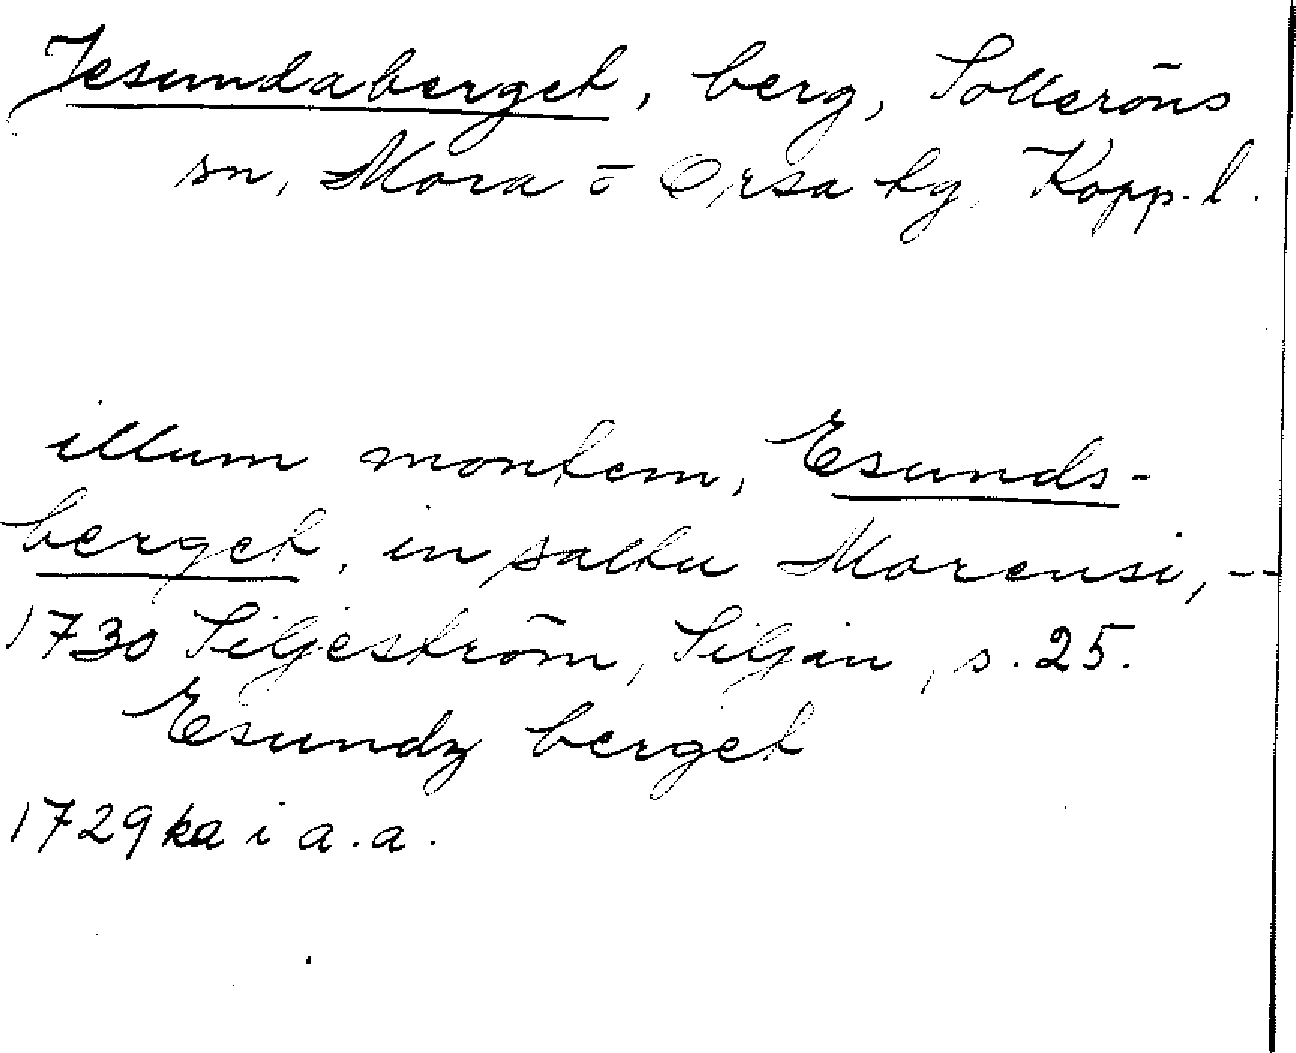 Jesundaberget, berg, Solleröns
sn, Mora o Orsa tg, Kopp. l.
illum montem, Esunds-
berget, in saltu Morensi, --
1730 Siljeström, Siljan, s. 25.
Esundz berget
1729 ka i a. a.